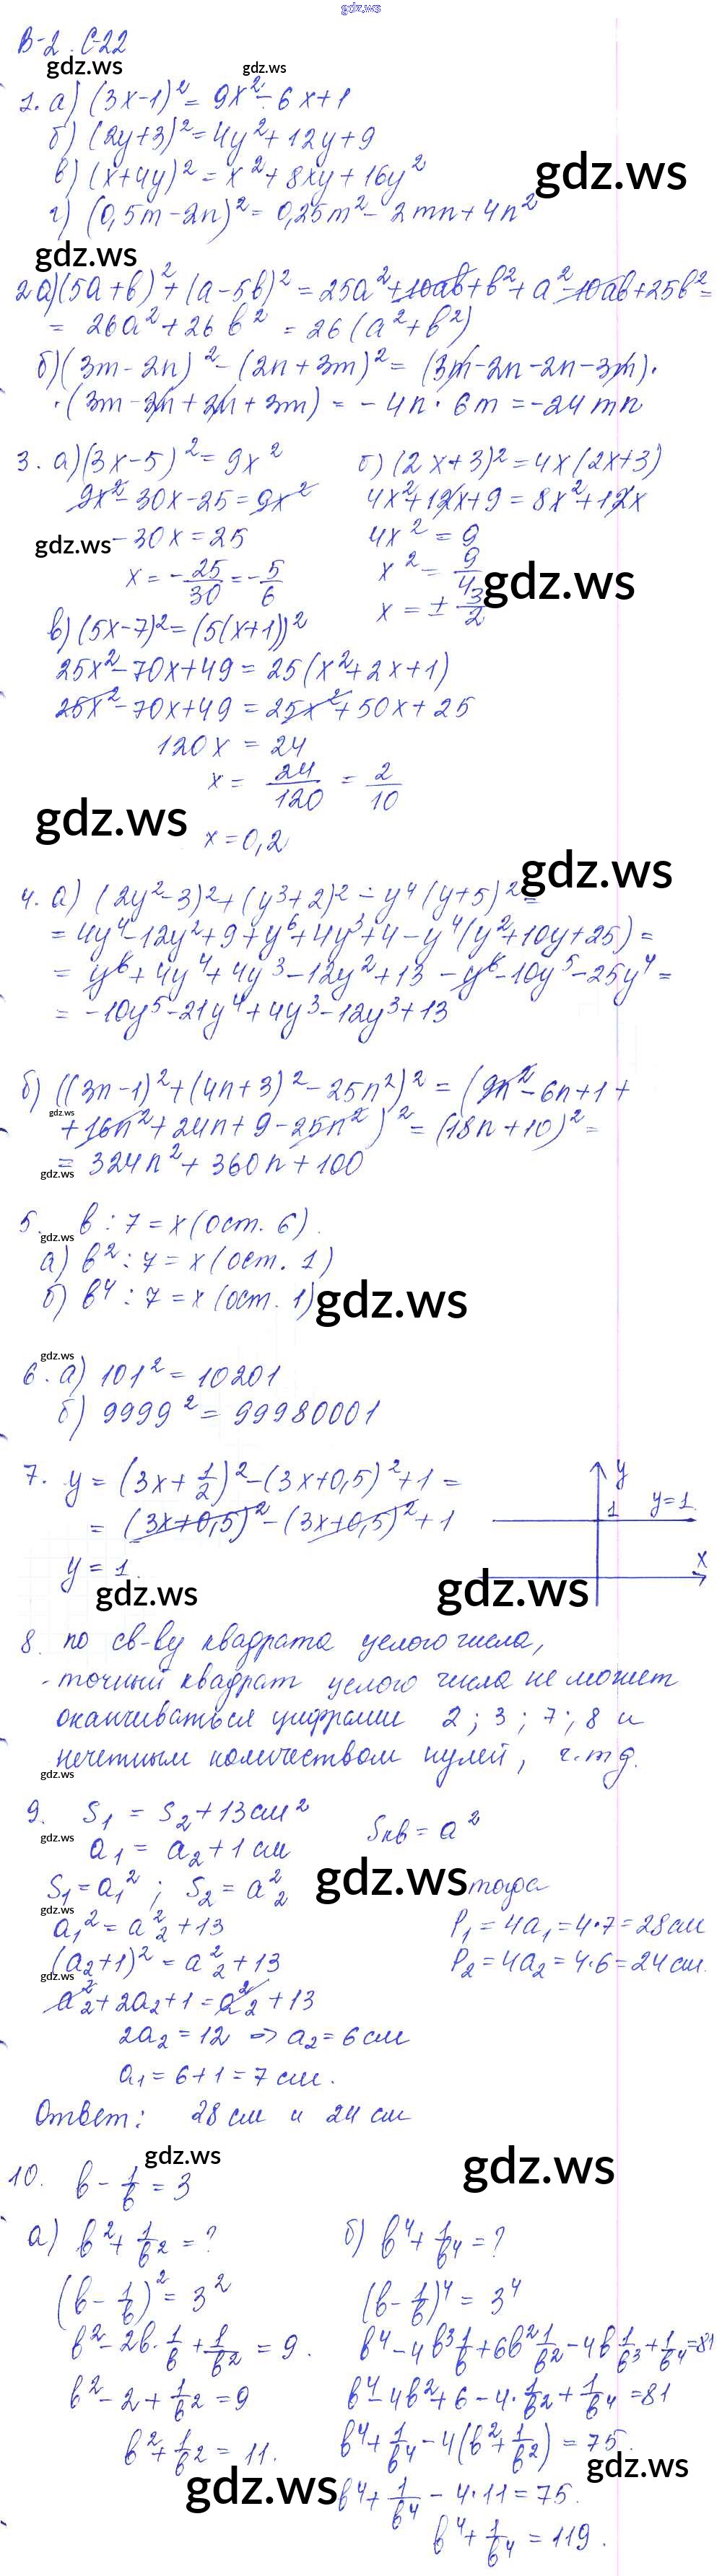 gdz.ws
В-2. С-22
gdz.ws gdz.ws
1. а) (3x-1)² = 9x² - 6x + 1
б) (2y+3)² = 4y² + 12y + 9
в) (x+4y)² = x² + 8xy + 16y²
gdz.ws
г) (0,5m-2n)² = 0,25m² - 2mn + 4n²
gdz.ws
2 а) (5a+b)² + (a-5b)² = 25a² + 10ab + b² + a² - 10ab + 25b² =
= 26a² + 26b² = 26(a²+b²)
б) (3m-2n)² - (2n+3m)² = (3m-2n-2n-3m)·
·(3m-2n+2n+3m) = -4n · 6m = -24mn
3. а) (3x-5)² = 9x²
9x² - 30x - 25 = 9x²
gdz.ws
-30x = 25
x = -25/30 = -5/6
б) (2x+3)² = 4x(2x+3)
4x² + 12x + 9 = 8x² + 12x
4x² = 9
x² = 9/4
gdz.ws
x = ± 3/2
в) (5x-7)² = (5(x+1))²
25x² - 70x + 49 = 25(x²+2x+1)
25x² - 70x + 49 = 25x² + 50x + 25
120x = 24
x = 24/120 = 2/10
gdz.ws
x = 0,2
gdz.ws
4. а) (2y²-3)² + (y³+2)² - y⁴(y+5)² =
= 4y⁴ - 12y² + 9 + y⁶ + 4y³ + 4 - y⁴(y²+10y+25) =
= y⁶ + 4y⁴ + 4y³ - 12y² + 13 - y⁶ - 10y⁵ - 25y⁴ =
= -10y⁵ - 21y⁴ + 4y³ - 12y³ + 13
б) ((3n-1)² + (4n+3)² - 25n²)² = (9n² - 6n + 1 +
gdz.ws
+ 16n² + 24n + 9 - 25n²)² = (18n+10)² =
gdz.ws
= 324n² + 360n + 100
5. b : 7 = x (ост. 6).
gdz.ws
а) b² : 7 = x (ост. 1)
б) b⁴ : 7 = x (ост. 1)
gdz.ws
gdz.ws
6. а) 101² = 10201
б) 9999² = 99980001
7. y = (3x + 1/2)² - (3x+0,5)² + 1 =
= (3x+0,5)² - (3x+0,5)² + 1
y = 1.
y
1 y=1
x
gdz.ws gdz.ws
8. по св-ву квадрата целого числа,
точный квадрат целого числа не может
оканчиваться цифрами 2; 3; 7; 8 и
нечетным количеством нулей, ч.т.д.
gdz.ws
9. S₁ = S₂ + 13 см²
gdz.ws
a₁ = a₂ + 1 см
Sкв = a²
S₁ = a₁² ; S₂ = a₂²
gdz.ws
gdz.ws
a₁² = a₂² + 13
(a₂+1)² = a₂² + 13
gdz.ws
a₂² + 2a₂ + 1 = a₂² + 13
2a₂ = 12 => a₂ = 6 см
a₁ = 6 + 1 = 7 см.
тогда
P₁ = 4a₁ = 4·7 = 28 см
P₂ = 4a₂ = 4·6 = 24 см.
Ответ: 28 см и 24 см
gdz.ws gdz.ws
10. b - 1/b = 3
а) b² + 1/b² = ?
(b - 1/b)² = 3²
b² - 2b · 1/b + 1/b² = 9.
b² - 2 + 1/b² = 9
b² + 1/b² = 11.
gdz.ws
б) b⁴ + 1/b⁴ = ?
(b - 1/b)⁴ = 3⁴
b⁴ - 4b³ 1/b + 6b² 1/b² - 4b 1/b³ + 1/b⁴ = 81
b⁴ - 4b² + 6 - 4 · 1/b² + 1/b⁴ = 81
b⁴ + 1/b⁴ - 4(b² + 1/b²) = 75.
gdz.ws
b⁴ + 1/b⁴ - 4·11 = 75.
b⁴ + 1/b⁴ = 119.